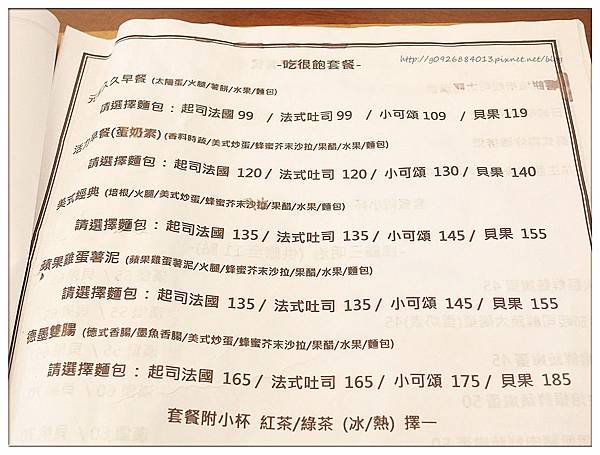 -吃很飽套餐-
http://g0926884013.pixnet.net/blog
久久早餐 (太陽蛋/火腿/薯餅/水果/麵包)
請選擇麵包：起司法國 99 / 法式吐司 99 / 小可頌 109 / 貝果 119
活力早餐(蛋奶素) (香料時蔬/美式炒蛋/蜂蜜芥末沙拉/果醋/水果/麵包)
請選擇麵包：起司法國 120 / 法式吐司 120 / 小可頌 130 / 貝果 140
美式經典 (培根/火腿/美式炒蛋/蜂蜜芥末沙拉/果醋/水果/麵包)
請選擇麵包：起司法國 135 / 法式吐司 135 / 小可頌 145 / 貝果 155
蘋果雞蛋薯泥 (蘋果雞蛋薯泥/火腿/蜂蜜芥末沙拉/果醋/水果/麵包)
請選擇麵包：起司法國 135 / 法式吐司 135 / 小可頌 145 / 貝果 155
德墨雙腸 (德式香腸/墨魚香腸/美式炒蛋/蜂蜜芥末沙拉/果醋/水果/麵包)
請選擇麵包：起司法國 165 / 法式吐司 165 / 小可頌 175 / 貝果 185
套餐附小杯 紅茶/綠茶 (冰/熱) 擇一